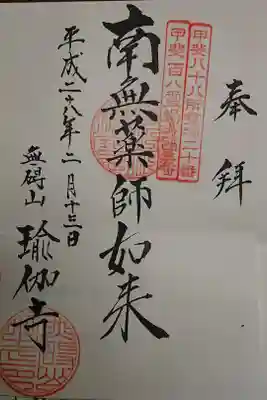 奉拝
甲斐八十八所第二十番
甲斐百八霊場第四番
南無薬師如来
平成二十八年二月十三日
無碍山
瑜伽寺